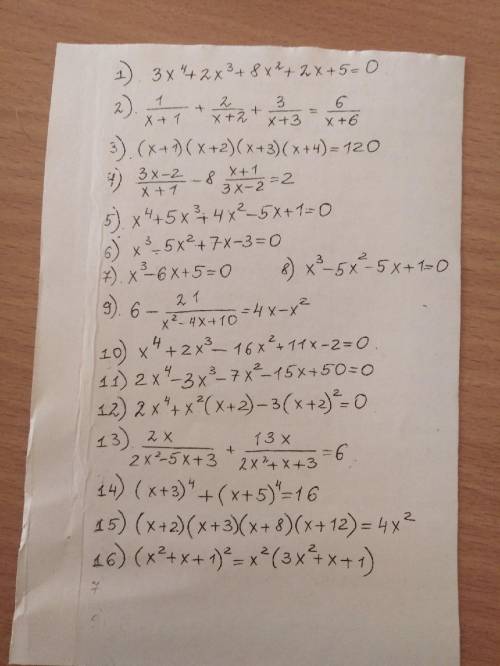 1). 3x⁴+2x³+8x²+2x+5=0
2). 1/(x+1) + 2/(x+2) + 3/(x+3) = 6/(x+6)
3). (x+1)(x+2)(x+3)(x+4)=120
4) (3x-2)/(x+1) - 8 (x+1)/(3x-2) = 2
5) x⁴+5x³+4x²-5x+1=0
6) x³-5x²+7x-3=0
7). x³-6x+5=0 8) x³-5x²-5x+1=0
9). 6 - 21/(x²-4x+10) = 4x-x²
10) x⁴+2x³-16x²+11x-2=0.
11) 2x⁴-3x³-7x²-15x+50=0
12) 2x⁴+x²(x+2)-3(x+2)²=0
13). 2x/(2x²-5x+3) + 13x/(2x²+x+3) = 6
14) (x+3)⁴+(x+5)⁴=16
15) (x+2)(x+3)(x+8)(x+12)=4x²
16) (x²+x+1)²=x²(3x²+x+1)